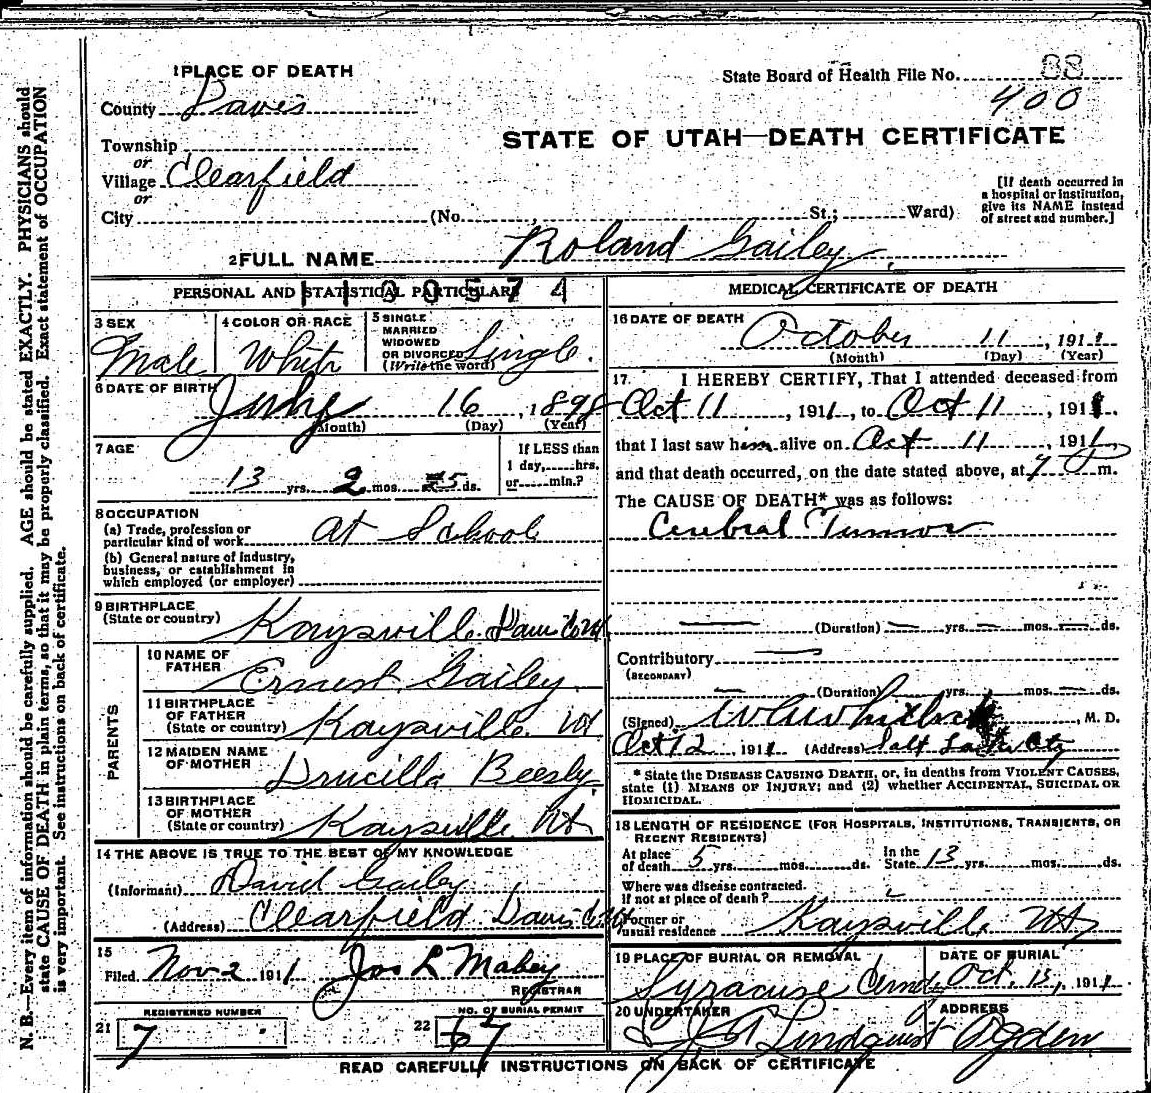 1 PLACE OF DEATH
State Board of Health File No. 88
County Davis
400
STATE OF UTAH—DEATH CERTIFICATE
Township
or
Village Clearfield
or
City (No. , St.; Ward)
[If death occurred in
a hospital or institution,
give its NAME instead
of street and number.]
2 FULL NAME Roland Gailey
PERSONAL AND STATISTICAL PARTICULARS
1100574
3 SEX
Male
4 COLOR OR RACE
White
5 SINGLE
MARRIED
WIDOWED
OR DIVORCED
(Write the word)
Single.
6 DATE OF BIRTH
July 16, 1898
(Month) (Day) (Year)
7 AGE
13 yrs. 2 mos. 25 ds.
If LESS than
1 day, hrs.
or min.?
8 OCCUPATION
(a) Trade, profession or
particular kind of work At School
(b) General nature of industry,
business, or establishment in
which employed (or employer)
9 BIRTHPLACE
(State or country) Kaysville Davis Co Ut
PARENTS
10 NAME OF
FATHER Ernest Gailey
11 BIRTHPLACE
OF FATHER
(State or country) Kaysville Ut
12 MAIDEN NAME
OF MOTHER Drucilla Beesly
13 BIRTHPLACE
OF MOTHER
(State or country) Kaysville Ut
14 THE ABOVE IS TRUE TO THE BEST OF MY KNOWLEDGE
(Informant) David Gailey
(Address) Clearfield Davis Co Ut
15
Filed Nov 2 1911 Jos L Mabey
REGISTRAR
21 REGISTERED NUMBER
7
22 NO. OF BURIAL PERMIT
67
MEDICAL CERTIFICATE OF DEATH
16 DATE OF DEATH
October 11, 1911
(Month) (Day) (Year)
17. I HEREBY CERTIFY, That I attended deceased from
Oct 11, 1911, to Oct 11, 1911,
that I last saw him alive on Oct 11, 1911
and that death occurred, on the date stated above, at 7 P m.
The CAUSE OF DEATH* was as follows:
Cerebral Tumor
(Duration) yrs. mos. ds.
Contributory
(SECONDARY)
(Duration) yrs. mos. ds.
(Signed) , M. D.
Oct 12, 1911 (Address) Salt Lake City
* State the DISEASE CAUSING DEATH, or, in deaths from VIOLENT CAUSES,
state (1) MEANS OF INJURY; and (2) whether ACCIDENTAL, SUICIDAL OR
HOMICIDAL.
18 LENGTH OF RESIDENCE (FOR HOSPITALS, INSTITUTIONS, TRANSIENTS, OR
RECENT RESIDENTS)
At place
of death 5 yrs. mos. ds.
In the
State 13 yrs. mos. ds.
Where was disease contracted.
if not at place of death?
Former or
usual residence Kaysville Ut
19 PLACE OF BURIAL OR REMOVAL
Syracuse
DATE OF BURIAL
Oct. 13, 1911
20 UNDERTAKER
Lindquist
ADDRESS
Ogden
READ CAREFULLY INSTRUCTIONS ON BACK OF CERTIFICATE
N. B.—Every item of information should be carefully supplied. AGE should be stated EXACTLY. PHYSICIANS should
state CAUSE OF DEATH in plain terms, so that it may be properly classified. Exact statement of OCCUPATION
is very important. See instructions on back of certificate.